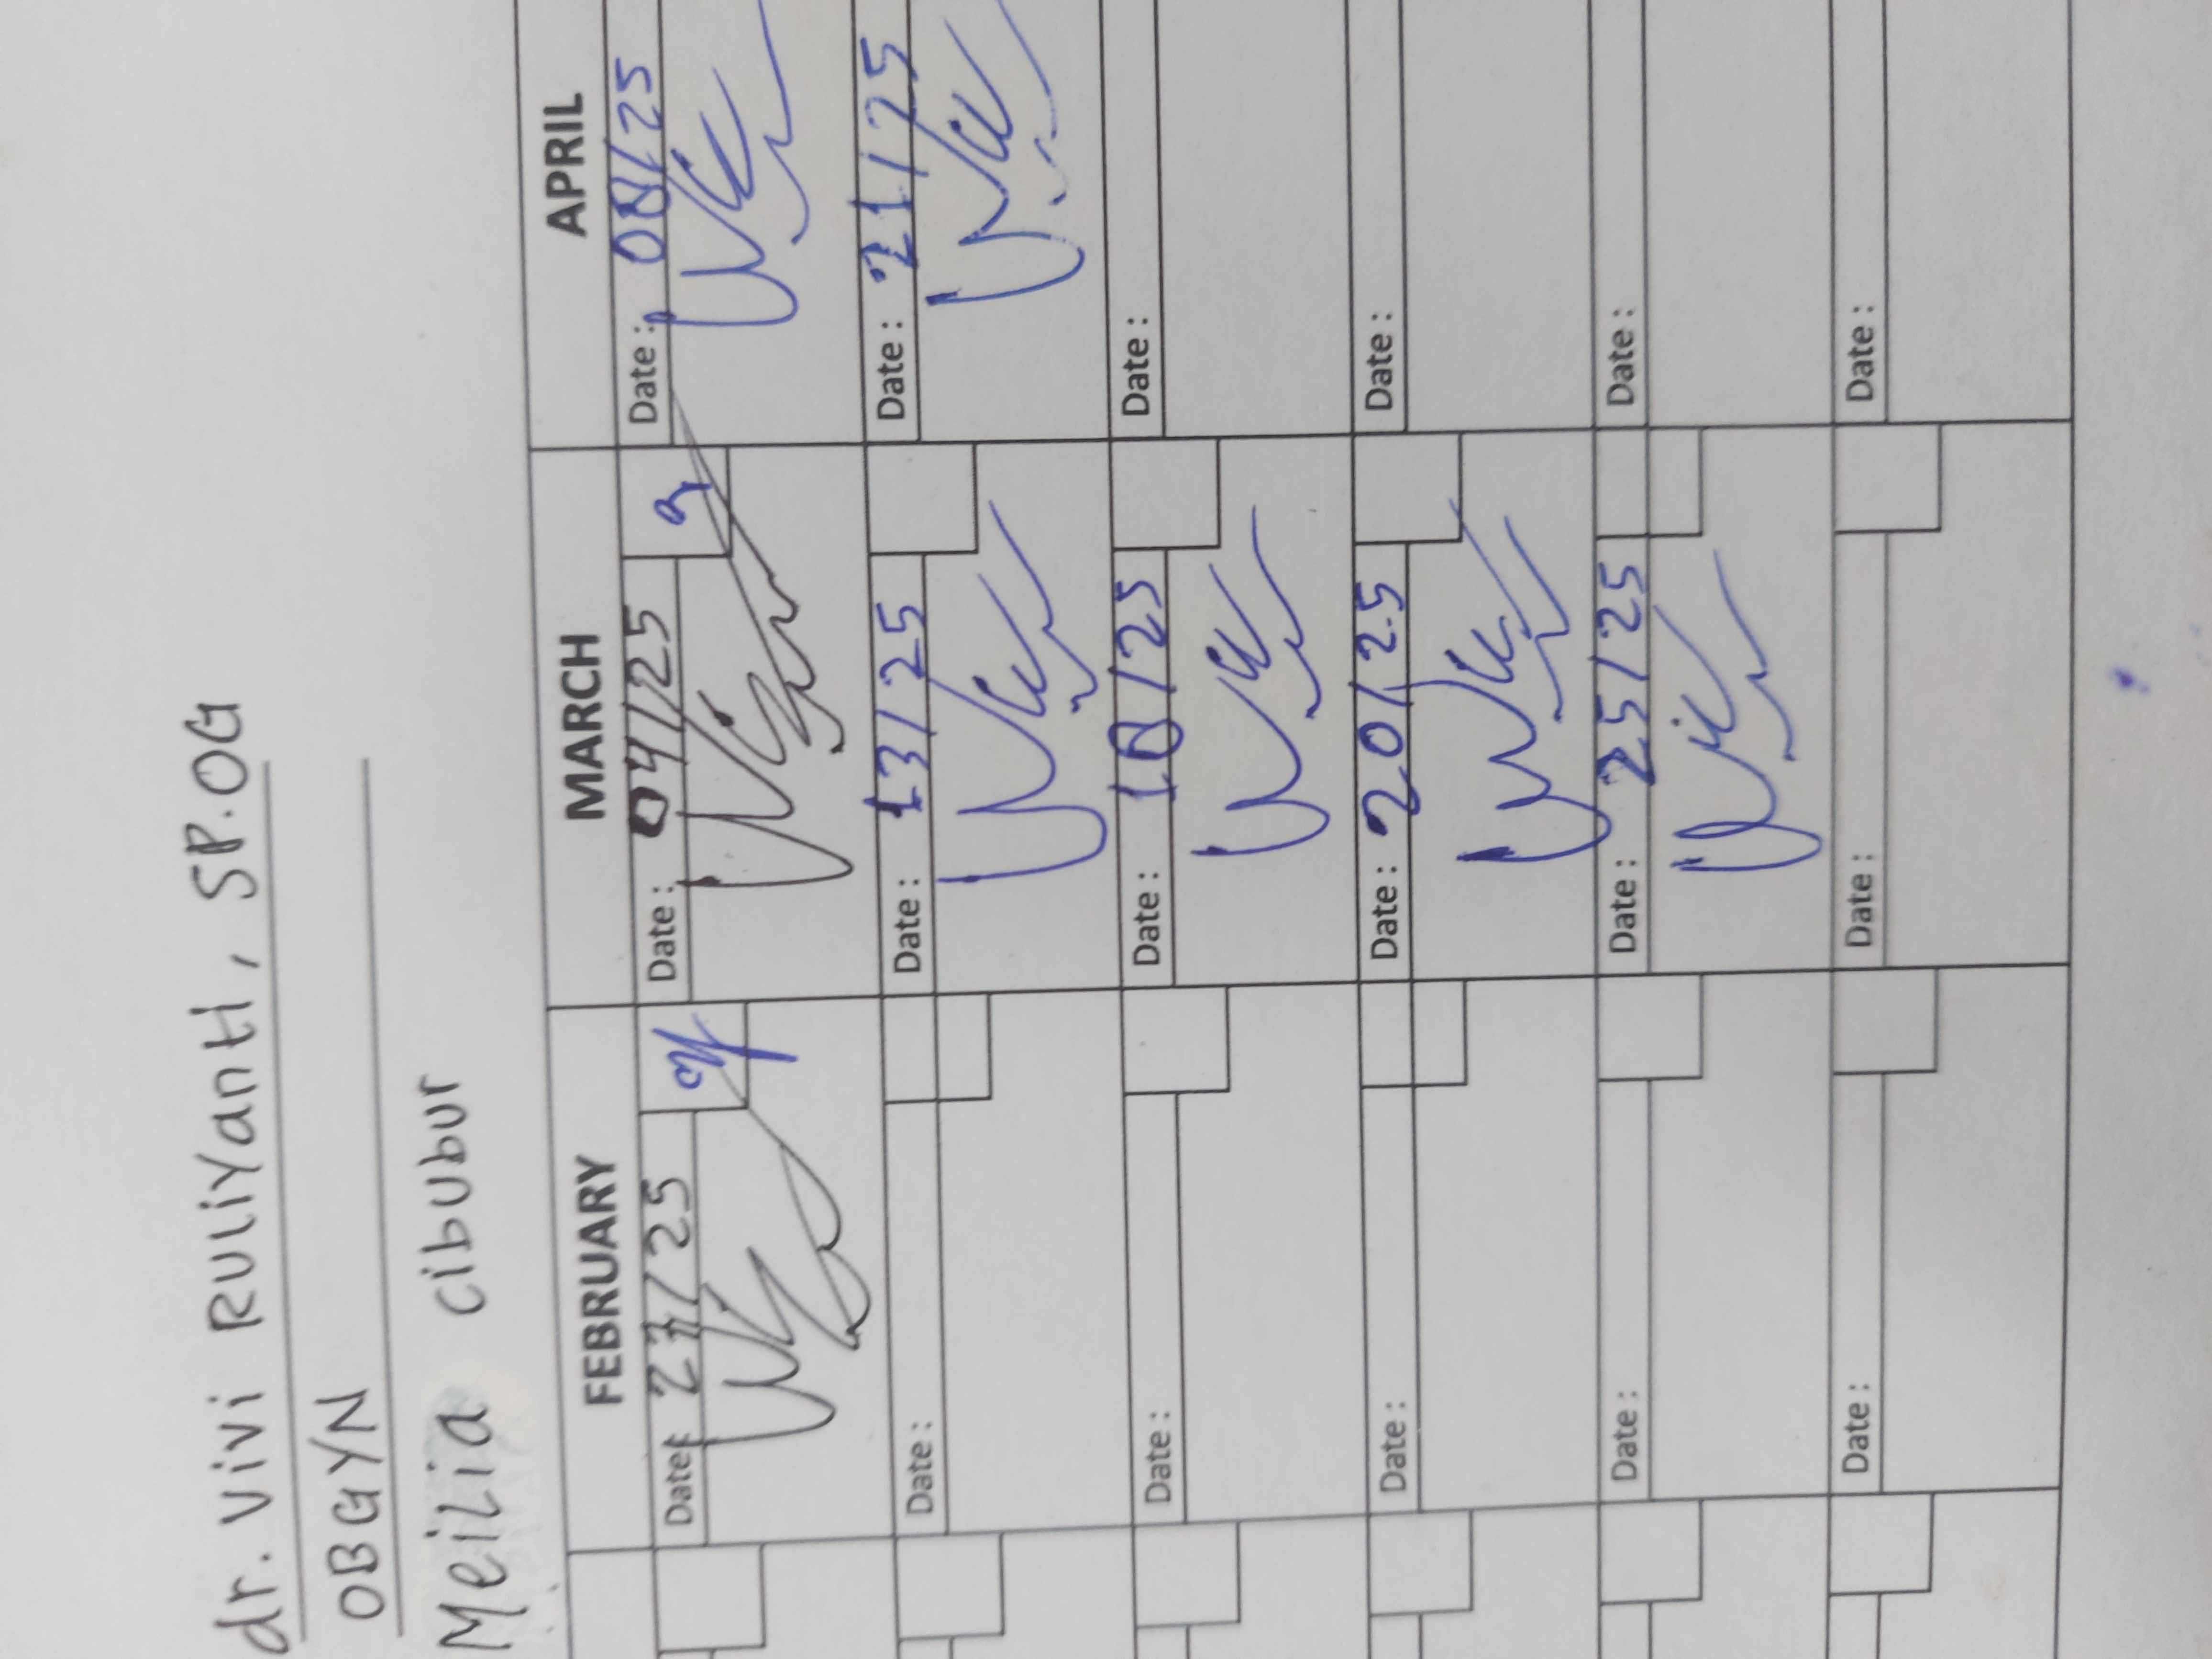 dr. Vivi Ruliyanti, SP.OG
OBGYN
Meilia Cibubur
FEBRUARY MARCH APRIL
Date: 27/25 Date: 04/25 Date: 08/25
Date: Date: 13/25 Date: 21/25
Date: Date: 18/25 Date:
Date: Date: 20/25 Date:
Date: Date: 25/25 Date:
Date: Date: Date: